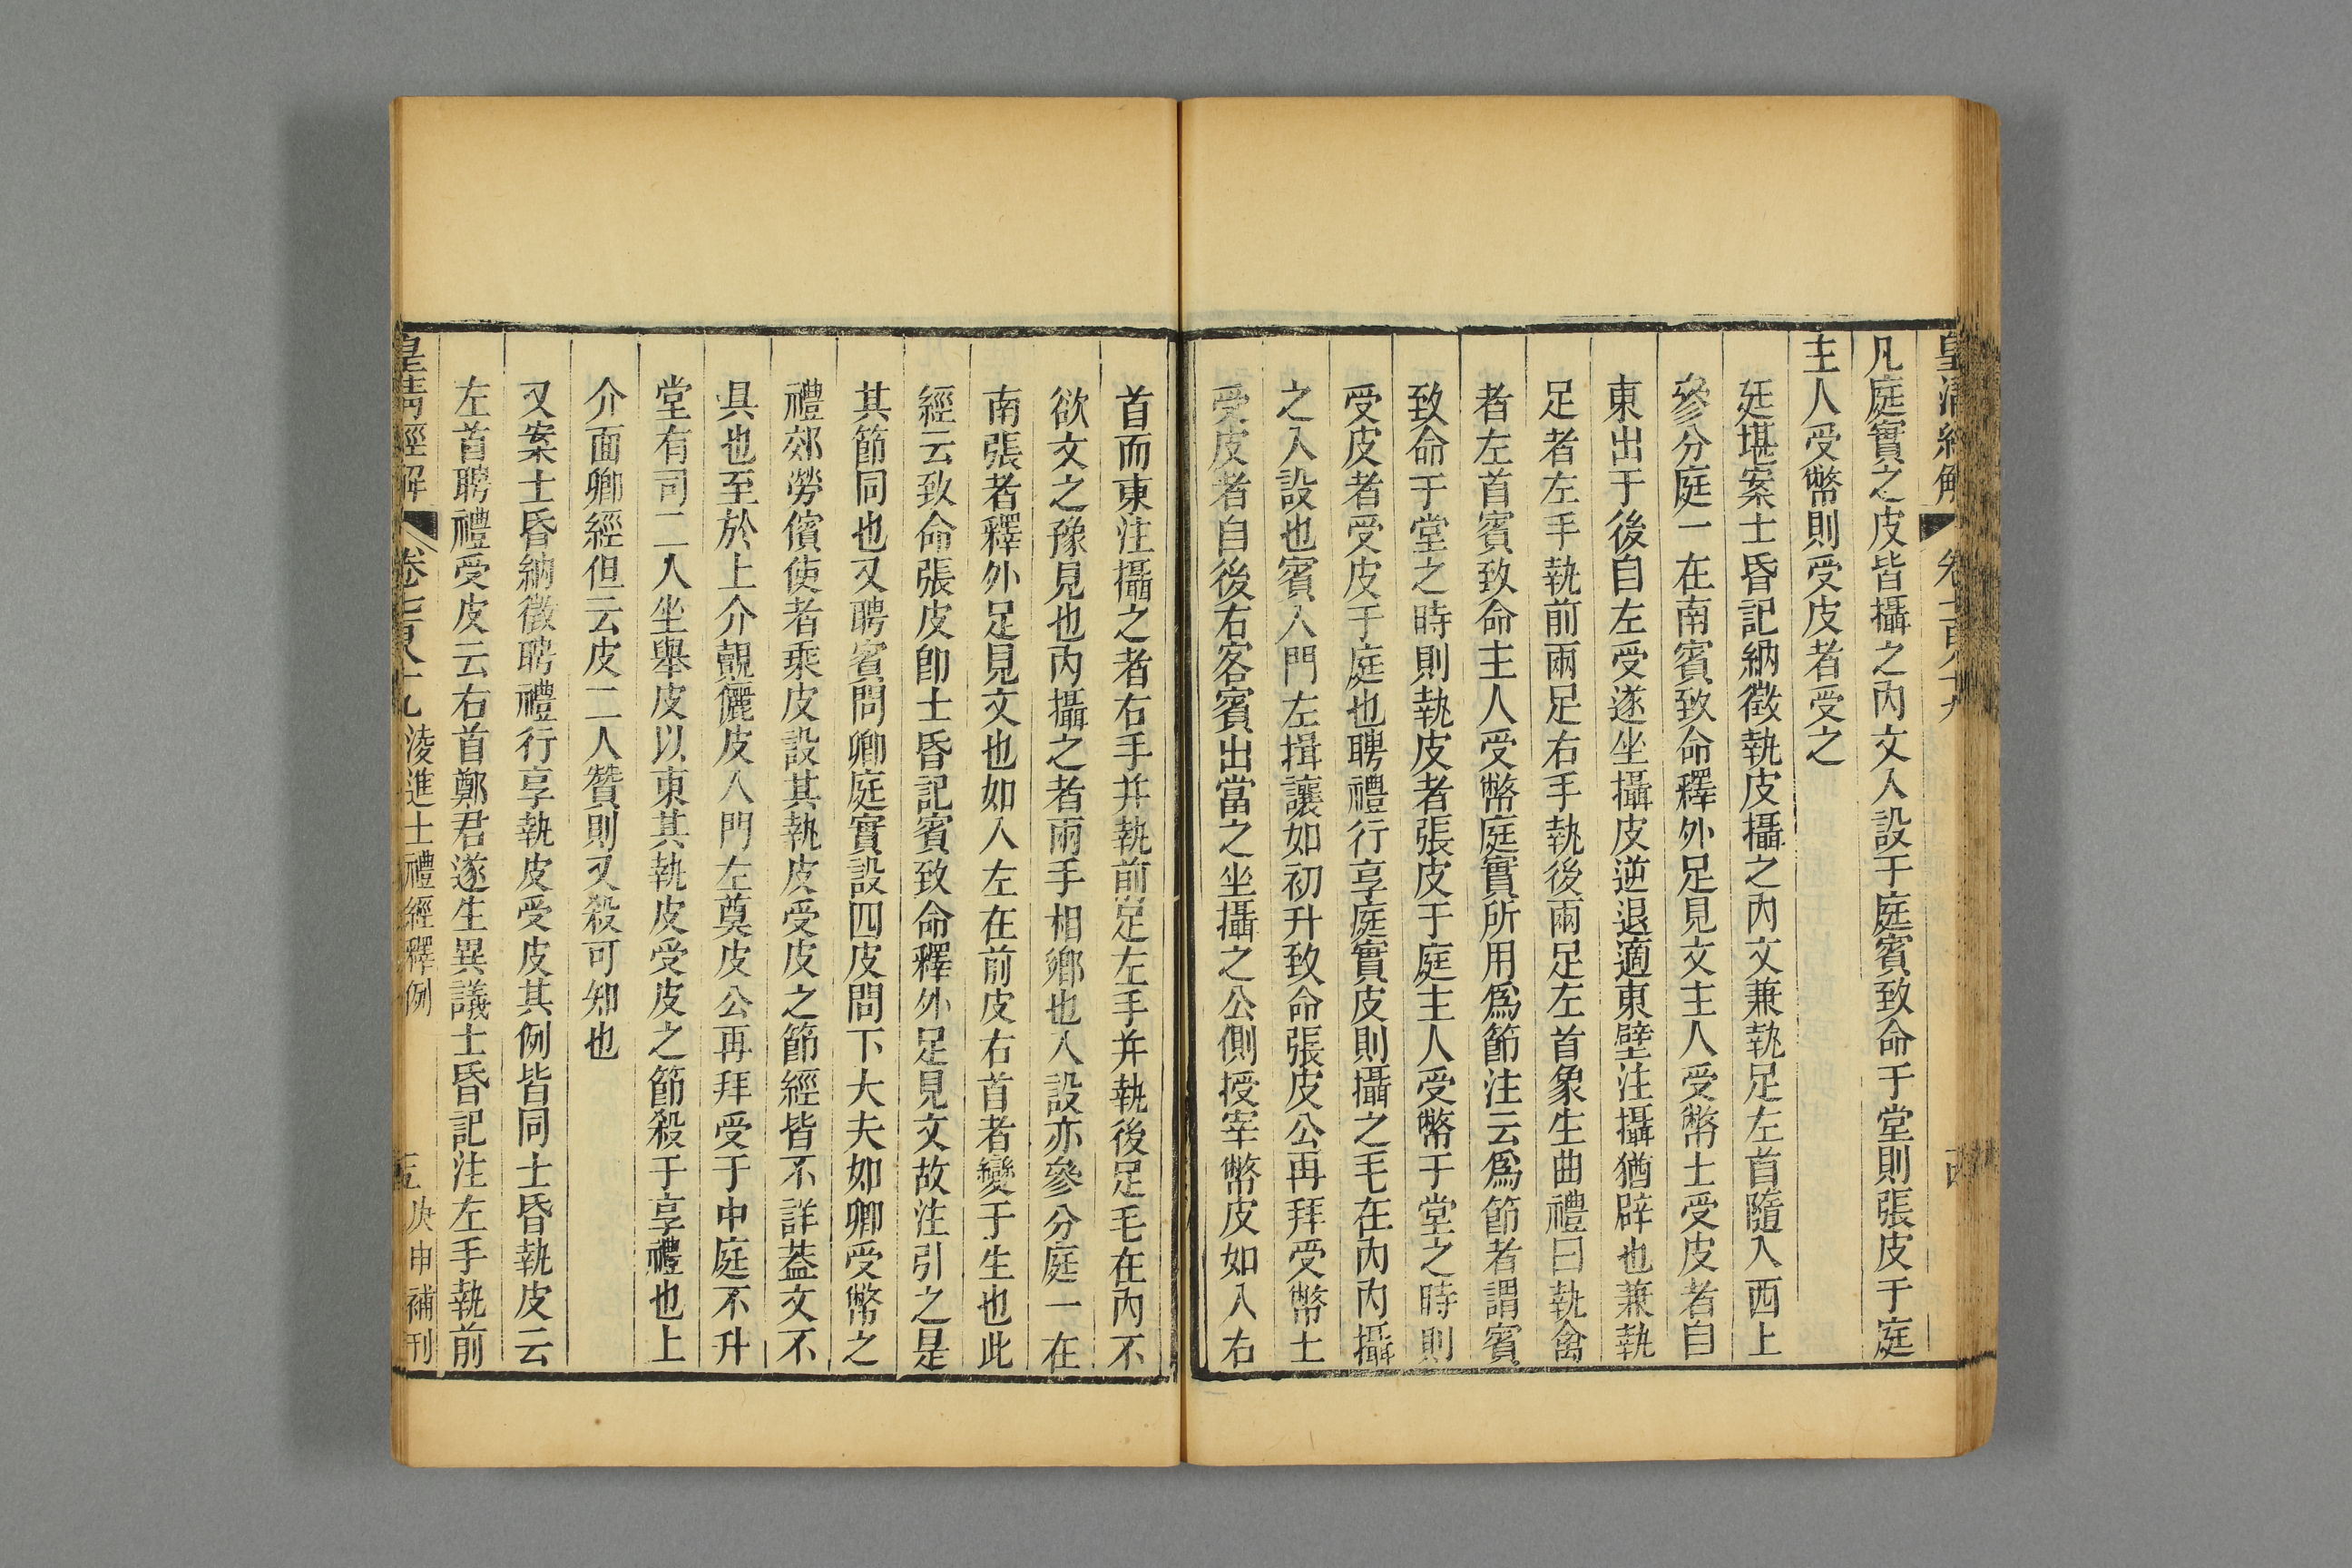 皇清經解
卷七百八十九
凡庭實之皮皆攝之內文入設于庭賓致命于堂則張皮于庭
主人受幣則受皮者受之
廷堪案士昏記納徵執皮攝之內文兼執足左首隨入西上
參分庭一在南賓致命釋外足見文主人受幣士受皮者自
東出于後自左受遂坐攝皮逆退適東壁注攝猶辟也兼執
足者左手執前兩足右手執後兩足左首象生曲禮曰執禽
者左首賓致命主人受幣庭實所用爲節注云爲節者謂賓
致命于堂之時則執皮者張皮于庭主人受幣于堂之時則
受皮者受皮于庭也聘禮行享庭實皮則攝之毛在內內攝
之入設也賓入門左揖讓如初升致命張皮公再拜受幣士
受皮者自後右客賓出當之坐攝之公側授宰幣皮如入右
首而東注攝之者右手并執前足左手并執後足毛在內不
欲文之豫見也內攝之者兩手相鄉也入設亦參分庭一在
南張者釋外足見文也如入左在前皮右首者變于生也此
經云致命張皮卽士昏記賓致命釋外足見文故注引之是
其節同也又聘賓問卿庭實設四皮問下大夫如卿受幣之
禮郊勞儐使者乘皮設其執皮受皮之節經皆不詳蓋文不
具也至於上介覿儷皮入門左奠皮公再拜受于中庭不升
堂有司二人坐舉皮以東其執皮受皮之節殺于享禮也上
介面卿經但云皮二人贊則又殺可知也
又案士昏納徵聘禮行享執皮受皮其例皆同士昏執皮云
左首聘禮受皮云右首鄭君遂生異議士昏記注左手執前
皇清經解
卷七百八十九
淩進士禮經釋例
十五
庚申補刊